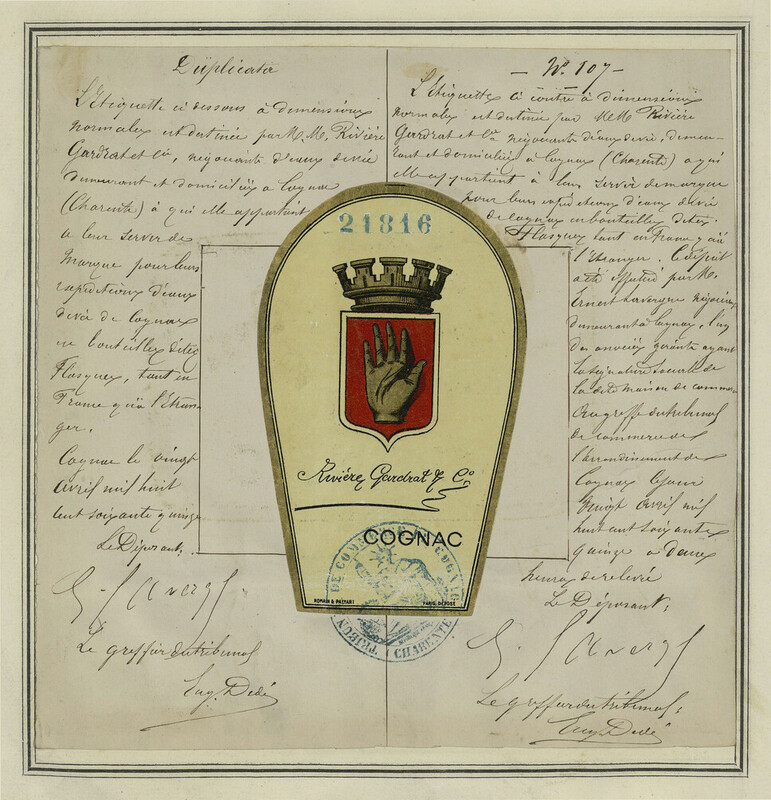 Duplicata
L'Etiquette ci dessous à dimensions
normales est destinée par M. M. Rivière
Gardrat et Cie, négociants d'eaux de vie
demeurant et domiciliés à Cognac
(Charente) à qui elle appartient
a leur servir de
marque pour leurs
expéditions d'eaux
de vie de Cognac
en bouteilles dites
Flasques, tant en
France qu'à l'étran-
ger.
Cognac le vingt
avril mil huit
cent soixante quinze
Le Déposant:
E. Lavergne
Le greffier du tribunal
Eug. Dedé
- No. 107 -
L'Etiquette ci contre à dimensions
normales est destinée par M M. Rivière
Gardrat et Cie négociants d'eaux de vie, demeu-
rant et domiciliés à Cognac (Charente) a qui
elle appartient à leur servir de marque
pour leurs expéditions d'eaux de vie
de Cognac en bouteilles dites
Flasques tant en France qu'à
l'étranger. Ce dépôt
a été effectué par M.
Ernest Lavergne négociant
demeurant à Cognac, l'un
des associés gérants ayant
la signature sociale de
la dite maison de commerce
au greffe du tribunal
de commerce de
l'arrondissement de
Cognac Ce jour
Vingt avril mil
huit cent soixante
quinze à deux
heures de relevée
Le Déposant:
E. Lavergne
Le greffier du tribunal:
Eug Dedé
21816
Rivière Gardrat & Co.
COGNAC
ROMAIN & PALYART PARIS. DÉPOSÉ
TRIBUNAL DE COMMERCE DE COGNAC
CHARENTE